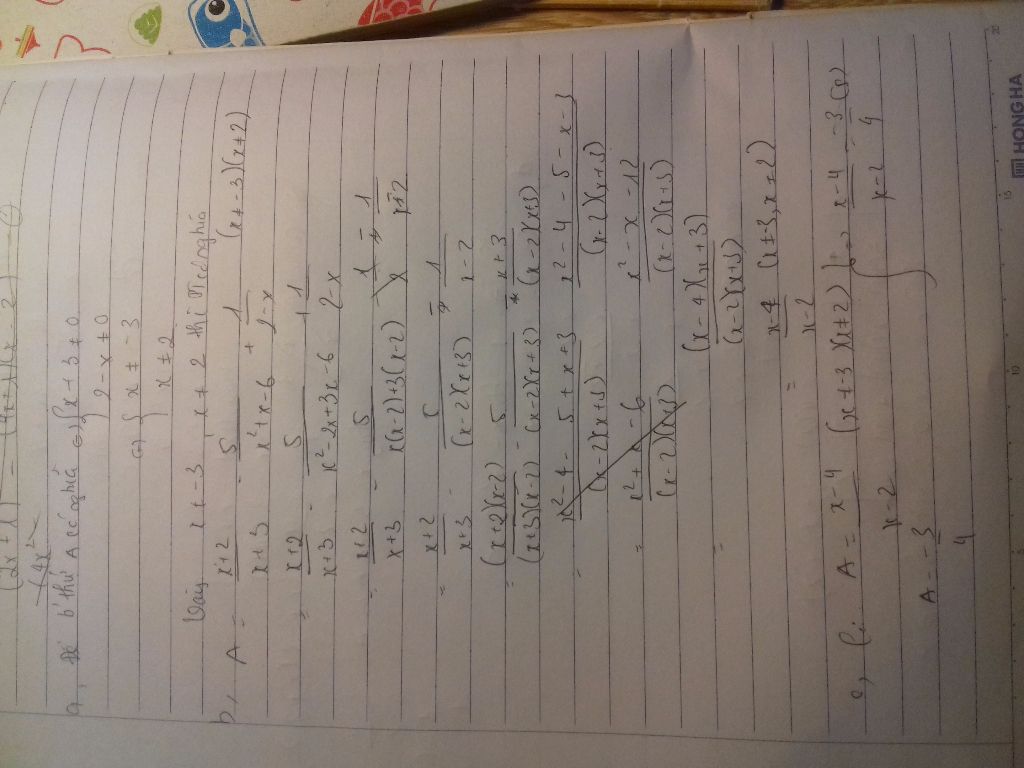 (2x+1) - (4x+1)(x-2)
a, Để b'thức A có nghĩa <=> { x + 3 ≠ 0
{ 2 - x ≠ 0
<=> { x ≠ - 3
{ x ≠ 2
Vậy x ≠ - 3 x ≠ 2 thì
b, A = x+2/x+3 - 5/x²+x-6 + 1/2-x (x ≠ -3)(x ≠ 2)
= x+2/x+3 - 5/x²-2x+3x-6 + 1/2-x
= x+2/x+3 - 5/x(x-2)+3(x-2) - 1/x-2
= x+2/x+3 - 5/(x-2)(x+3) - 1/x-2
= (x+2)(x-2)/(x+3)(x-2) - 5/(x-2)(x+3) - x+3/(x-2)(x+3)
= x²-4-5+x+3/(x-2)(x+3) x²-4-5-x-3/(x-2)(x+3)
= x²+x-6/(x-2)(x+3) x²-x-12/(x-2)(x+3)
= (x-4)(x+3)/(x-2)(x+3)
= x-4/x-2 (x≠-3, x≠2)
c, A = x-4/x-2 (x≠-3)(x≠2) } => x-4/x-2 = -3/4
A = -3/4
HONG HA